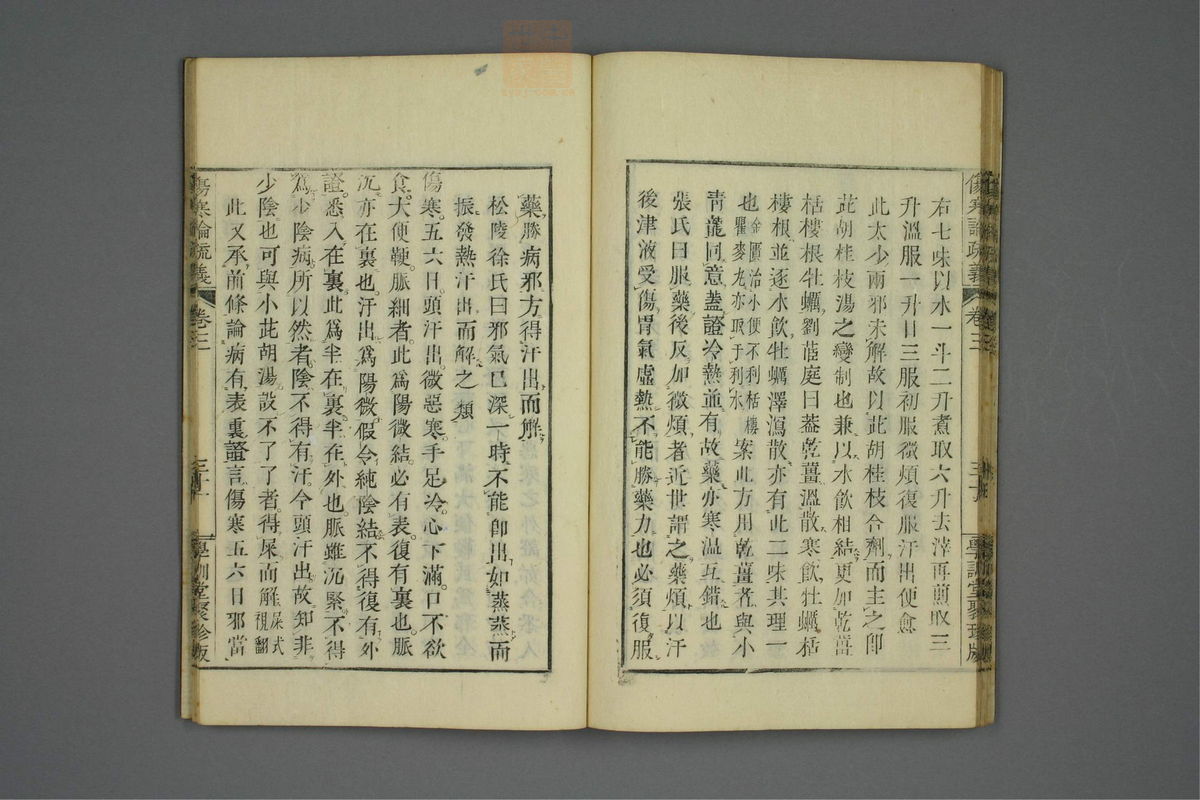 右七味以水一斗二升煮取六升去滓再煎取三
升溫服一升日三服初服微煩復服汗出便愈
此太少兩邪未解故以茈胡桂枝合劑而主之卽
茈胡桂枝湯之變制也兼以水飲相結更加乾薑
栝樓根牡蠣劉茝庭曰蓋乾薑溫散寒飲牡蠣栝
樓根並逐水飲牡蠣澤瀉散亦有此二味其理一
也金匱治小便不利栝樓瞿麥丸亦取于利水案此方用乾薑者與小
靑龍同意蓋證冷熱並有故藥亦寒溫互錯也
張氏曰服藥後反加微煩者近世謂之藥煩以汗
後津液受傷胃氣虛熱不能勝藥力也必須復服
藥勝病邪方得汗出而解
松陵徐氏曰邪氣已深一時不能卽出如蒸蒸而
振發熱汗出而解之類
傷寒五六日頭汗出微惡寒手足冷心下滿口不欲
食大便鞕脈細者此爲陽微結必有表復有裏也脈
沉亦在裏也汗出爲陽微假令純陰結不得復有外
證悉入在裏此爲半在裏半在外也脈雖沉緊不得
爲少陰病所以然者陰不得有汗今頭汗出故知非
少陰也可與小茈胡湯設不了了者得屎而解屎式視翻
此又承前條論病有表裏證言傷寒五六日邪當
傷寒論疏義
卷三
學訓堂聚珍版